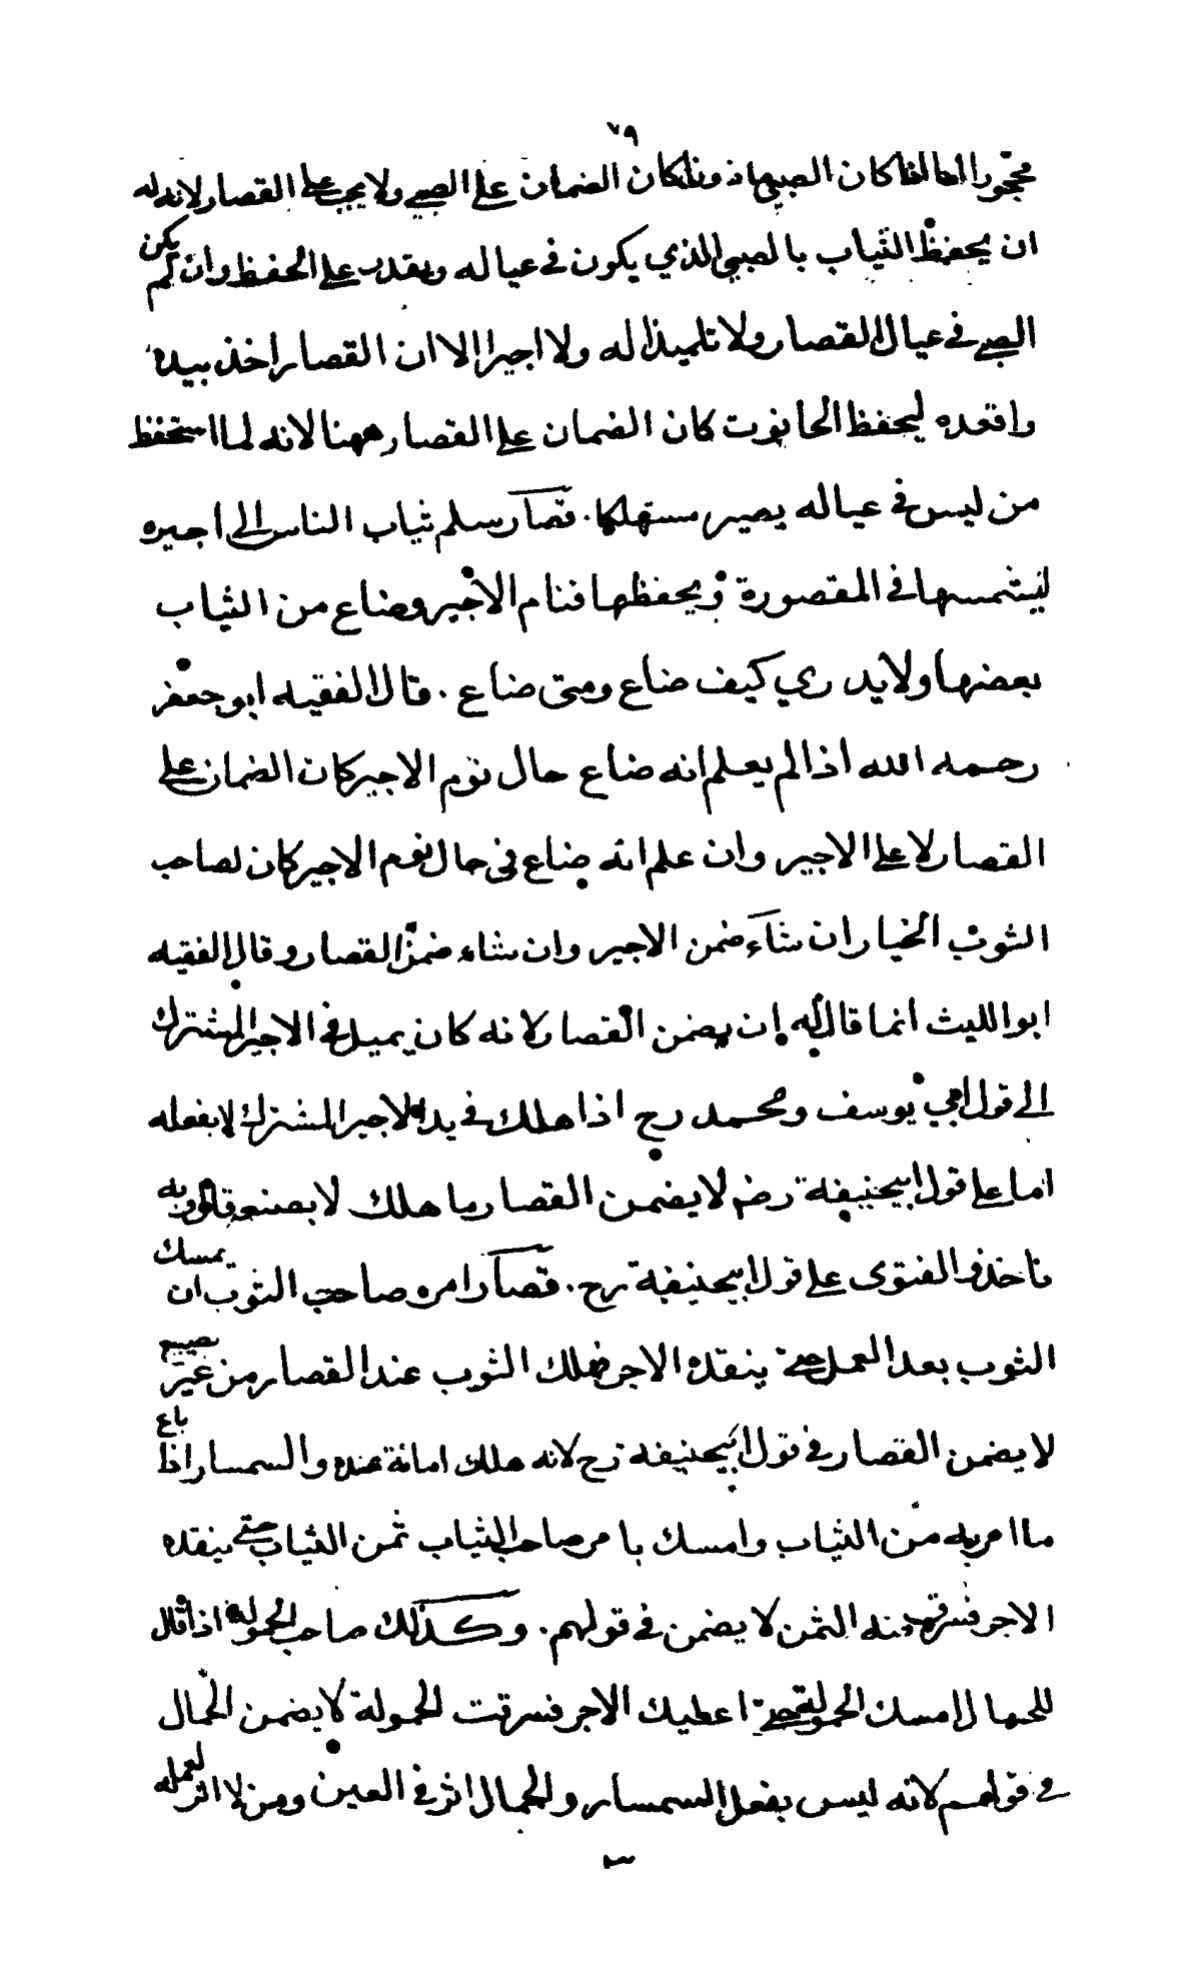 ٧٩
محجورا اما اذا كان الصبي ماذونا كان الضمان على الصبي ولا يجب على القصار لانه له
ان يحفظ الثياب بالصبي الذي يكون في عياله ويقدر على الحفظ وان لم يكن
الصبي في عيال القصار ولا تلميذا له ولا اجيرا الا ان القصار اخذ بيده
واقعده ليحفظ الحانوت كان الضمان على القصار ههنا لانه لما استحفظ
من ليس في عياله يصير مستهلكا . قصار سلم ثياب الناس الى اجيره
ليشمسها في المقصورة ويحفظها فنام الاجير وضاع من الثياب
بعضها ولا يدري كيف ضاع ومتى ضاع . قال الفقيه ابو جعفر
رحمه الله اذا لم يعلم انه ضاع حال نوم الاجير كان الضمان على
القصار لا على الاجير وان علم انه ضاع في حال نوم الاجير كان لصاحب
الثوب الخيار ان شآء ضمن الاجير وان شاء ضمن القصار وقال الفقيه
ابو الليث انما قال له ان يضمن القصار لانه كان يميل في الاجير المشترك
الى قول ابي يوسف ومحمد رح اذا هلك في يد الاجير المشترك لا بفعله
اما على قول ابيحنيفة رض لا يضمن القصار ما هلك لا بصنعه قالوا وبه
ناخذ والفتوى على قول ابيحنيفة رح . قصار امره صاحب الثوب ان يمسك
الثوب بعد العمل حتى ينقده الاجر فهلك الثوب عند القصار من غير تضييع
لا يضمن القصار في قول ابيحنيفة رح لانه هلك امانة عنده والسمسار اذا باع
ما امر به من الثياب وامسك بامر صاحب الثياب ثمن الثياب حتى ينقده
الاجر فسرق منه الثمن لا يضمن في قولهم . وكذلك صاحب الحمولة اذا قال
للحمال امسك الحمولة حتى اعطيك الاجر فسرقت الحمولة لا يضمن الحمال
في قولهم لانه ليس بفعل السمسار والحمال اثر في العين ومن لا اثر لعمله